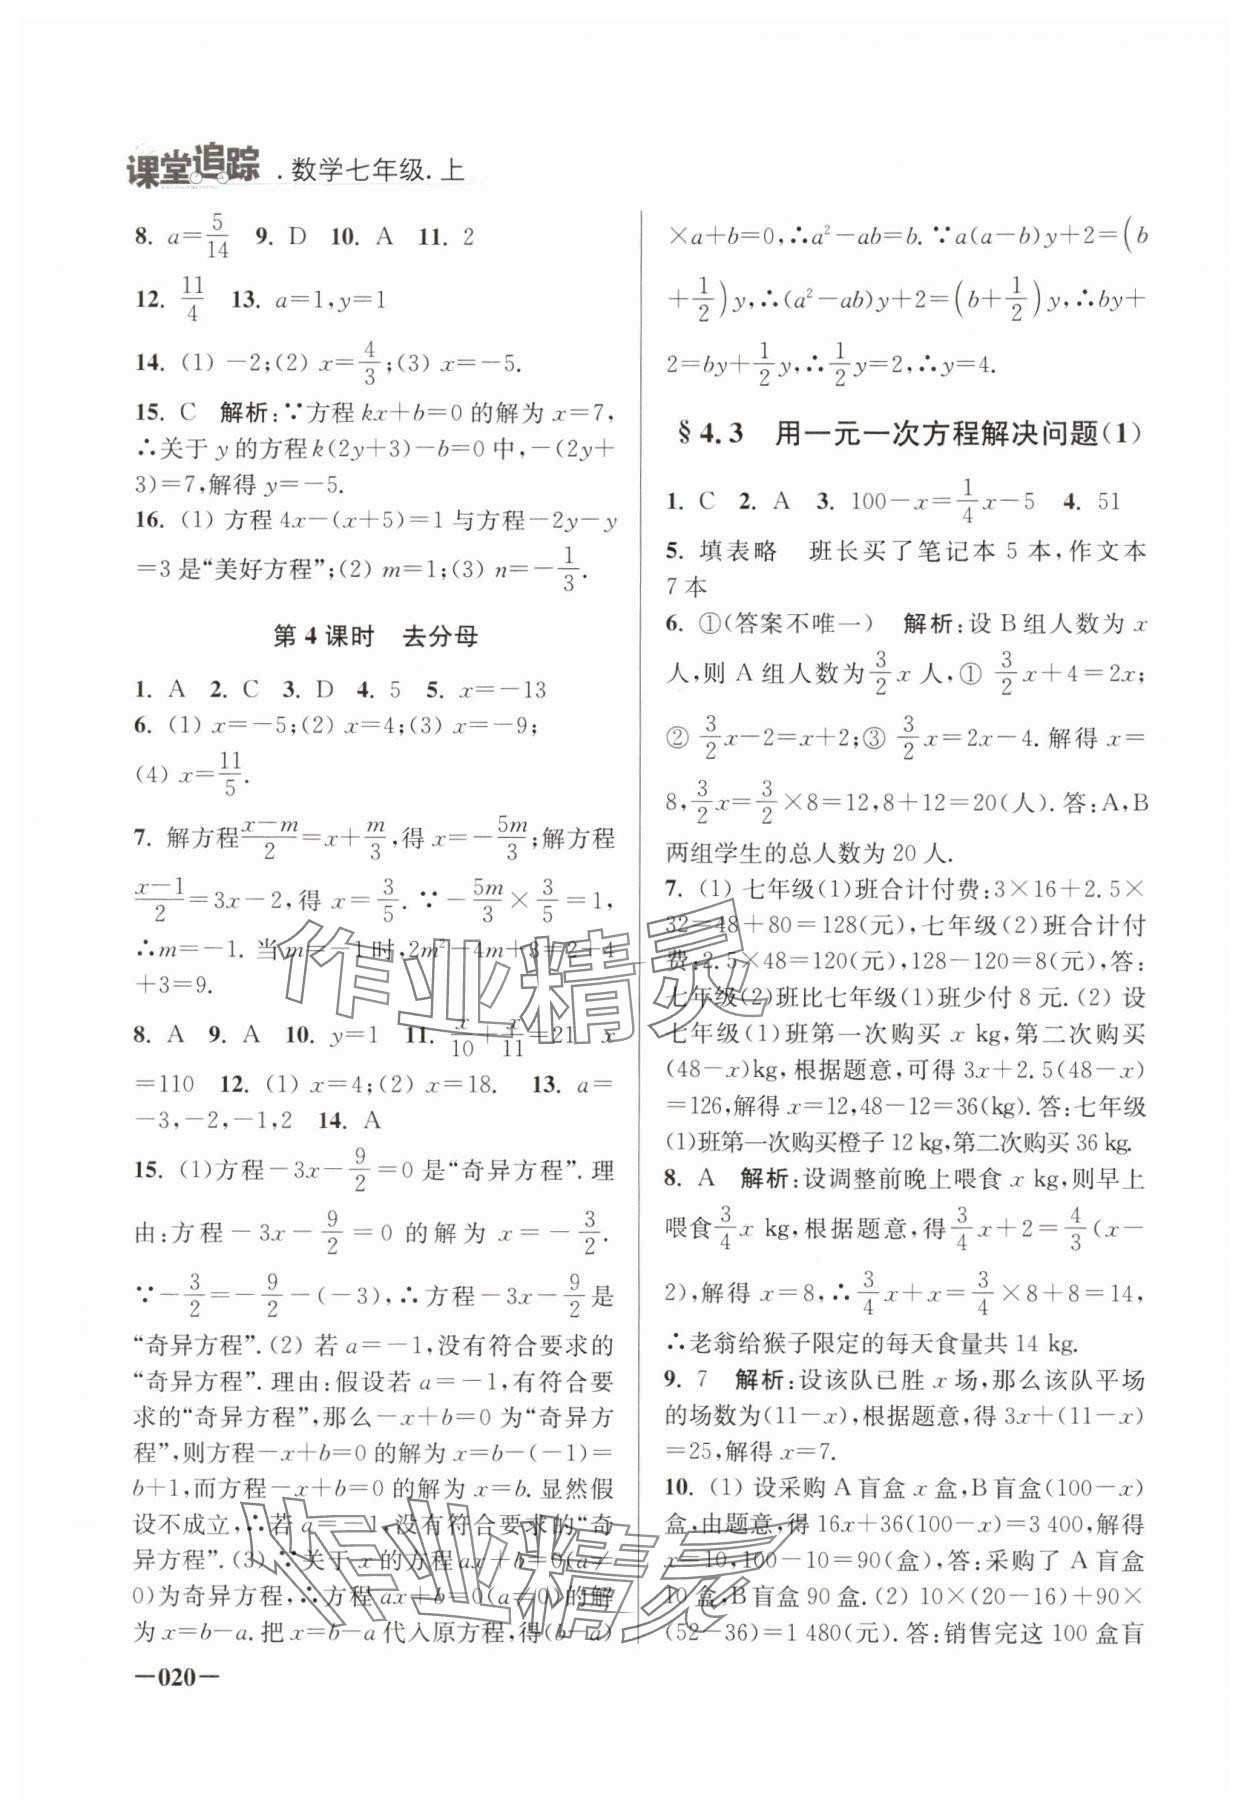 课堂追踪 . 数学七年级. 上
8. a=5/14 9. D 10. A 11. 2
12. 11/4 13. a=1,y=1
14. (1) -2;(2) x=4/3;(3) x=-5.
15. C 解析:∵方程 kx+b=0 的解为 x=7,
∴关于 y 的方程 k(2y+3)-b=0 中,-(2y+
3)=7,解得 y=-5.
16. (1) 方程 4x-(x+5)=1 与方程-2y-y
=3 是“美好方程”;(2) m=1;(3) n=-1/3.
第 4 课时 去分母
1. A 2. C 3. D 4. 5 5. x=-13
6. (1) x=-5;(2) x=4;(3) x=-9;
(4) x=11/5.
7. 解方程(x-m)/2=x+m/3,得 x=-5m/3;解方程
(x-1)/2=3x-2,得 x=3/5. ∵-5m/3×3/5=1,
∴m=-1. 当 m=-1 时,2m²-4m+3=2+4
+3=9.
8. A 9. A 10. y=1 11. x/10+x/11=21 x
=110 12. (1) x=4;(2) x=18. 13. a=
-3,-2,-1,2 14. A
15. (1)方程-3x-9/2=0 是“奇异方程”. 理
由:方程-3x-9/2=0 的解为 x=-3/2.
∵-3/2=-9/2-(-3),∴方程-3x-9/2=0是
“奇异方程”.(2) 若 a=-1,没有符合要求的
“奇异方程”.理由:假设若 a=-1,有符合要
求的“奇异方程”,那么-x+b=0 为“奇异方
程”,则方程-x+b=0 的解为 x=b-(-1)=
b+1,而方程-x+b=0 的解为 x=b. 显然假
设不成立,∴若 a=-1,没有符合要求的“奇
异方程”.(3) ∵关于 x 的方程 ax+b=0(a≠
0)为奇异方程,∴方程 ax+b=0(a≠0)的解
为 x=b-a. 把 x=b-a 代入原方程,得(b-a)
—020—
×a+b=0,∴a²-ab=b. ∵a(a-b)y+2=(b
+1/2)y,∴(a²-ab)y+2=(b+1/2)y,∴by+
2=by+1/2y,∴1/2y=2,∴y=4.
§4.3 用一元一次方程解决问题(1)
1. C 2. A 3. 100-x=1/4x-5 4. 51
5. 填表略 班长买了笔记本 5 本,作文本
7 本
6. ①(答案不唯一) 解析:设 B 组人数为 x
人,则 A 组人数为3/2x 人,① 3/2x+4=2x;
② 3/2x-2=x+2;③ 3/2x=2x-4. 解得 x=
8,3/2x=3/2×8=12,8+12=20(人). 答:A,B
两组学生的总人数为 20 人.
7. (1) 七年级(1)班合计付费:3×16+2.5×
32=48+80=128(元),七年级(2)班合计付
费:2.5×48=120(元),128-120=8(元),答:
七年级(2)班比七年级(1)班少付 8 元.(2) 设
七年级(1)班第一次购买 x kg,第二次购买
(48-x)kg,根据题意,可得 3x+2.5(48-x)
=126,解得 x=12,48-12=36(kg). 答:七年级
(1)班第一次购买橙子 12 kg,第二次购买 36 kg.
8. A 解析:设调整前晚上喂食 x kg,则早上
喂食3/4x kg,根据题意,得3/4x+2=4/3(x-
2),解得 x=8,∴3/4x+x=3/4×8+8=14,
∴老翁给猴子限定的每天食量共 14 kg.
9. 7 解析:设该队已胜 x 场,那么该队平场
的场数为(11-x),根据题意,得 3x+(11-x)
=25,解得 x=7.
10. (1) 设采购 A 盲盒 x 盒,B 盲盒(100-x)
盒,由题意,得 16x+36(100-x)=3 400,解得
x=10,100-10=90(盒),答:采购了 A 盲盒
10 盒,B 盲盒 90 盒.(2) 10×(20-16)+90×
(52-36)=1 480(元). 答:销售完这 100 盒盲
作业精灵
作业精灵